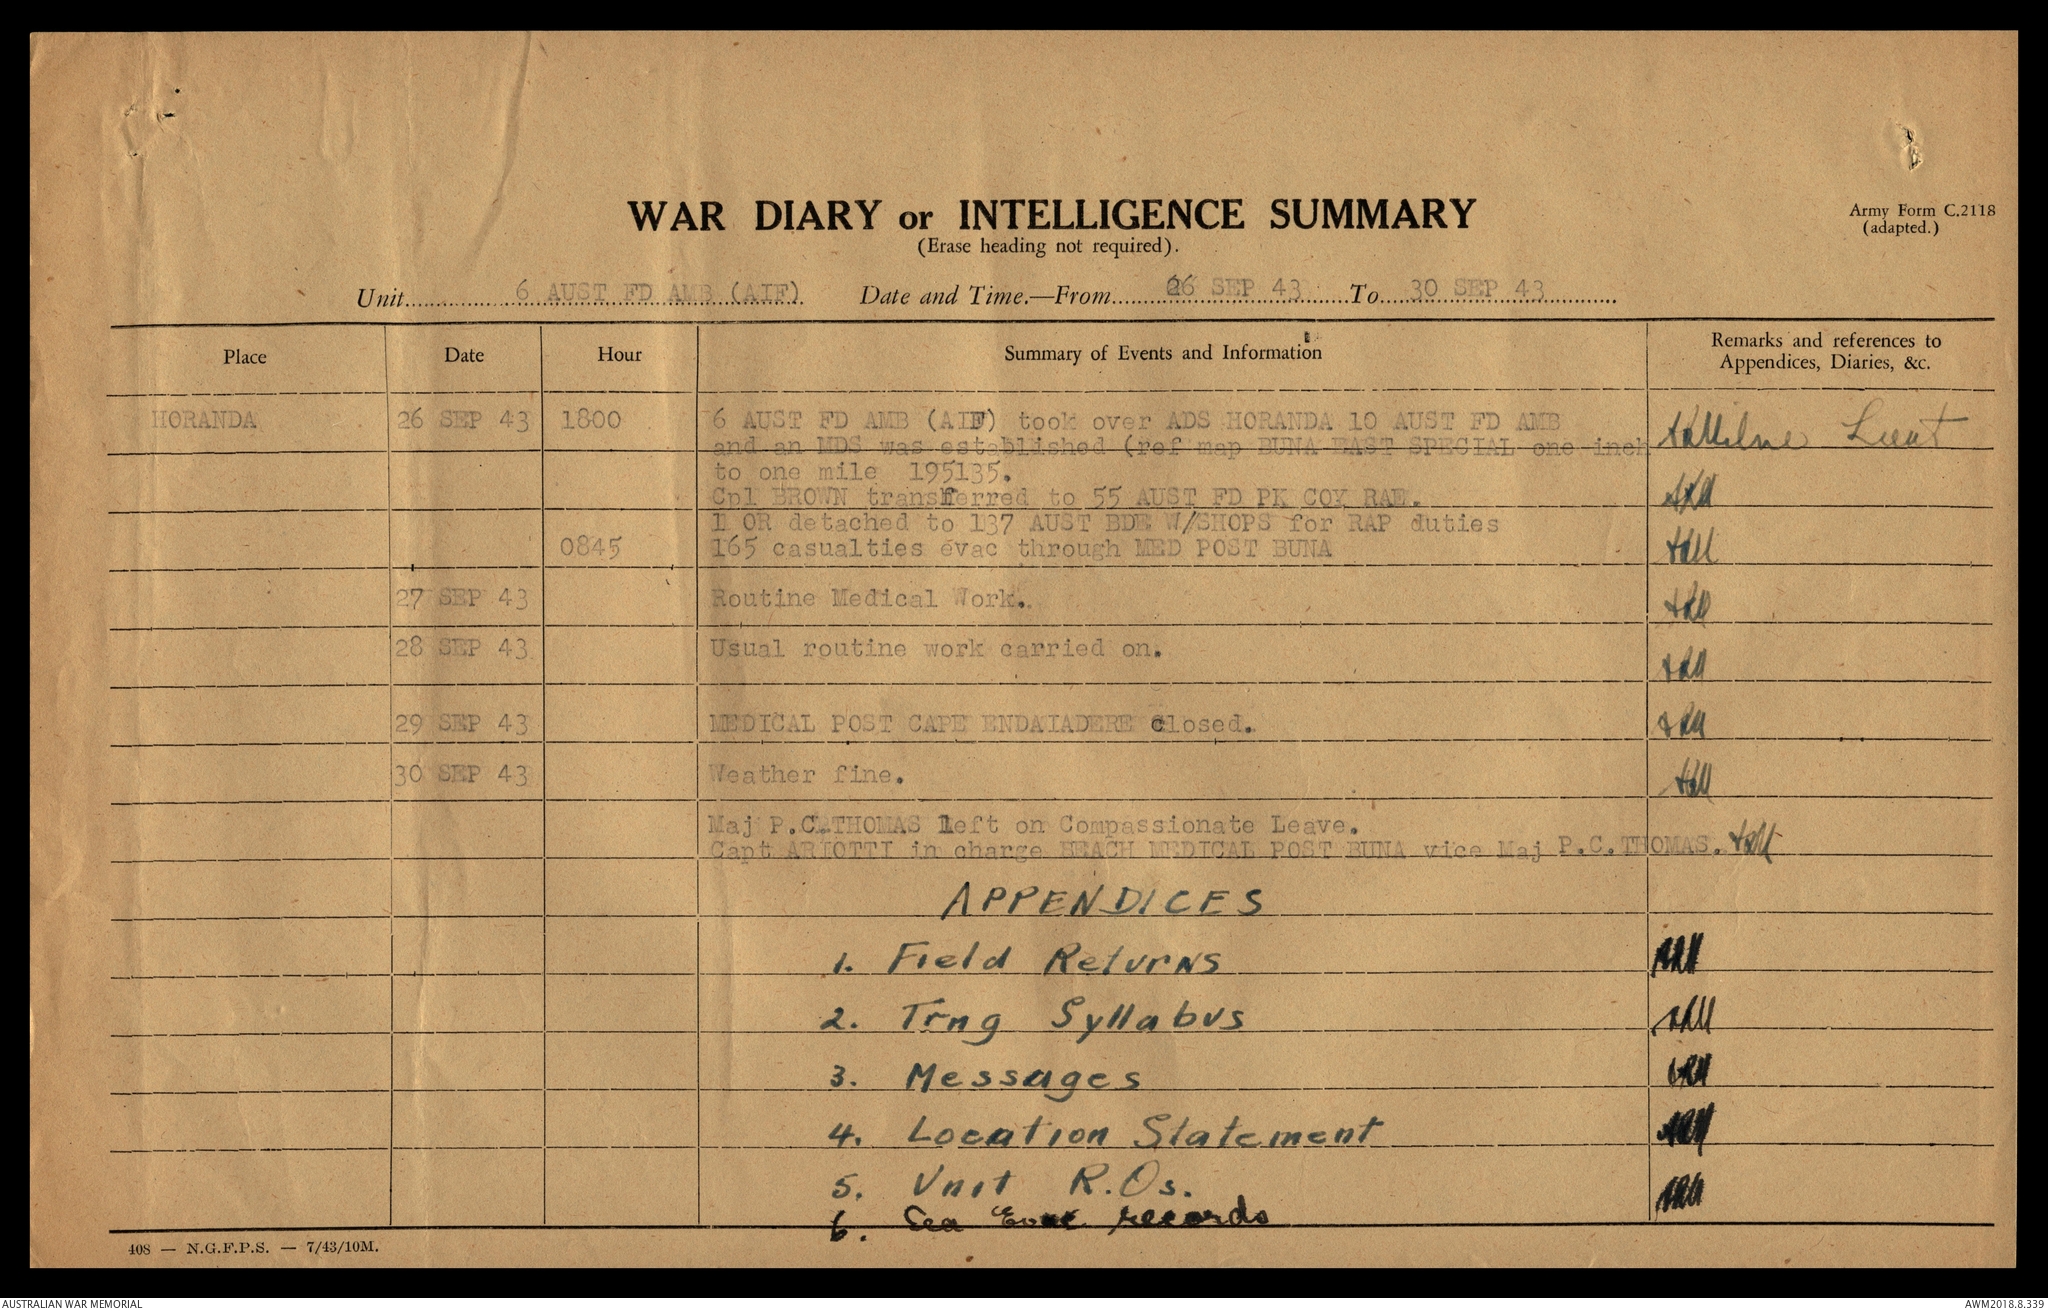 WAR DIARY or INTELLIGENCE SUMMARY
Army Form C.2118
(adapted.)
(Erase heading not required).
Unit 6 AUST FD AMB (AIF) Date and Time.—From 26 SEP 43 To 30 SEP 43
Place Date Hour Summary of Events and Information Remarks and references to
Appendices, Diaries, &c.
HORANDA 26 SEP 43 1800 6 AUST FD AMB (AIF) took over ADS HORANDA 10 AUST FD AMB
and an MDS was established (ref map BUNA EAST SPECIAL one inch Milne Lieut
to one mile 195135.
Cpl BROWN transferred to 55 AUST FD PK COY RAE.
1 OR detached to 137 AUST BDE W/SHOPS for RAP duties
0845 165 casualties evac through MED POST BUNA
27 SEP 43 Routine Medical Work.
28 SEP 43 Usual routine work carried on.
29 SEP 43 MEDICAL POST CAPE ENDAIADERE closed.
30 SEP 43 Weather fine.
Maj P.C. THOMAS left on Compassionate Leave.
Capt ARIOTTI in charge BEACH MEDICAL POST BUNA vice Maj P.C.THOMAS.
APPENDICES
1. Field Returns
2. Trng Syllabus
3. Messages
4. Location Statement
5. Unit R.Os.
6. Sea Evac records
408 — N.G.F.P.S. — 7/43/10M.
AUSTRALIAN WAR MEMORIAL AWM2018.8.339